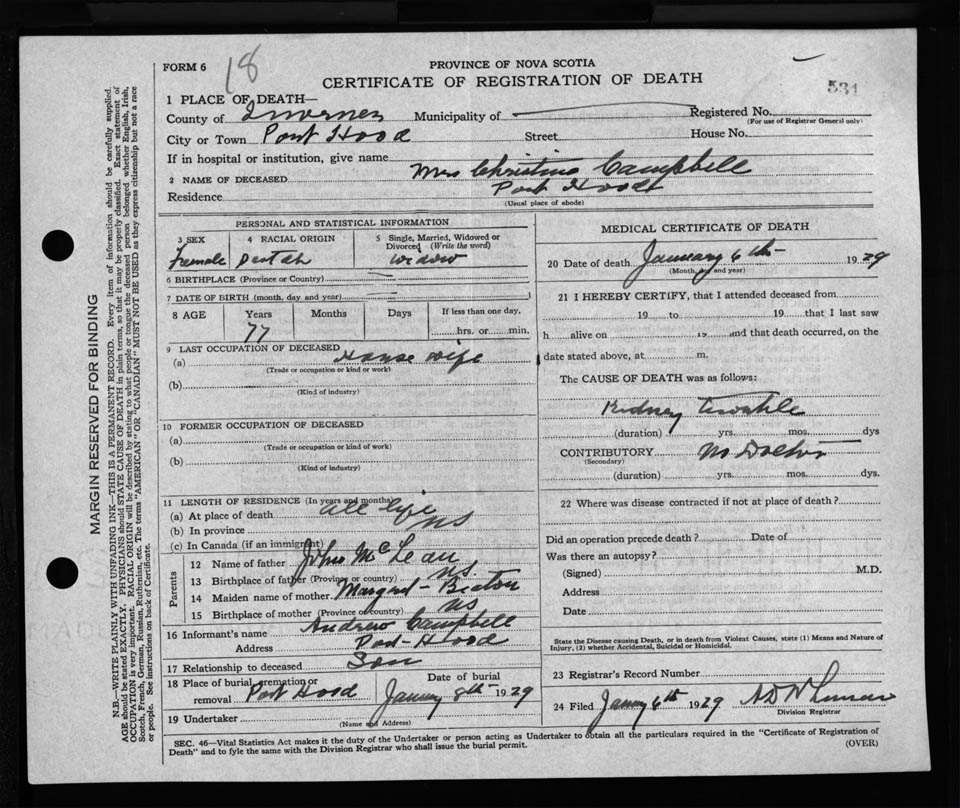 FORM 6
18
PROVINCE OF NOVA SCOTIA
CERTIFICATE OF REGISTRATION OF DEATH
531
1 PLACE OF DEATH—
County of Inverness Municipality of Registered No.
(For use of Registrar General only)
City or Town Port Hood Street House No.
If in hospital or institution, give name
2 NAME OF DECEASED Mrs Christina Campbell
Residence Port Hood
(Usual place of abode)
PERSONAL AND STATISTICAL INFORMATION
3 SEX 4 RACIAL ORIGIN 5 Single, Married, Widowed or Divorced (Write the word)
Female
6 BIRTHPLACE (Province or Country)
7 DATE OF BIRTH (month, day and year)
8 AGE Years Months Days If less than one day,
77 hrs. or min.
9 LAST OCCUPATION OF DECEASED
(a) House wife
(Trade or occupation or kind or work)
(b)
(Kind of industry)
10 FORMER OCCUPATION OF DECEASED
(a)
(Trade or occupation or kind of work)
(b)
(Kind of industry)
11 LENGTH OF RESIDENCE (In years and months)
(a) At place of death all life
(b) In province NS
(c) In Canada (if an immigrant)
Parents
12 Name of father John McLean
13 Birthplace of father (Province or country) NS
14 Maiden name of mother Beaton
15 Birthplace of mother (Province or country) NS
16 Informant's name Andrew Campbell
Address Port Hood
17 Relationship to deceased Son
18 Place of burial, cremation or removal Port Hood Date of burial January 8th 1929
19 Undertaker
(Name and Address)
MEDICAL CERTIFICATE OF DEATH
20 Date of death January 6th 1929
(Month, day and year)
21 I HEREBY CERTIFY, that I attended deceased from
19 to 19 that I last saw
h alive on 19 and that death occurred, on the
date stated above, at m.
The CAUSE OF DEATH was as follows:
Kidney trouble
(duration) yrs. mos. dys
CONTRIBUTORY No Doctor
(Secondary)
(duration) yrs. mos. dys.
22 Where was disease contracted if not at place of death?
Did an operation precede death? Date of
Was there an autopsy?
(Signed) M.D.
Address
Date
State the Disease causing Death, or in death from Violent Causes, state (1) Means and Nature of
Injury, (2) whether Accidental, Suicidal or Homicidal.
23 Registrar's Record Number
24 Filed January 6th 1929
Division Registrar
SEC. 46—Vital Statistics Act makes it the duty of the Undertaker or person acting as Undertaker to obtain all the particulars required in the "Certificate of Registration of
Death" and to fyle the same with the Division Registrar who shall issue the burial permit. (OVER)
MARGIN RESERVED FOR BINDING
N.B.—WRITE PLAINLY WITH UNFADING INK—THIS IS A PERMANENT RECORD. Every item of information should be carefully supplied.
AGE should be stated EXACTLY. PHYSICIANS should STATE CAUSE OF DEATH in plain terms, so that it may be properly classified. Exact statement of
OCCUPATION is very important. RACIAL ORIGIN will be described by stating to what people or tongue the deceased person belonged whether English, Irish,
Scotch, French, German, Russian, Ruthenian, etc. The terms "AMERICAN" OR "CANADIAN" MUST NOT BE USED as they express citizenship but not a race
or people. See instructions on back of Certificate.